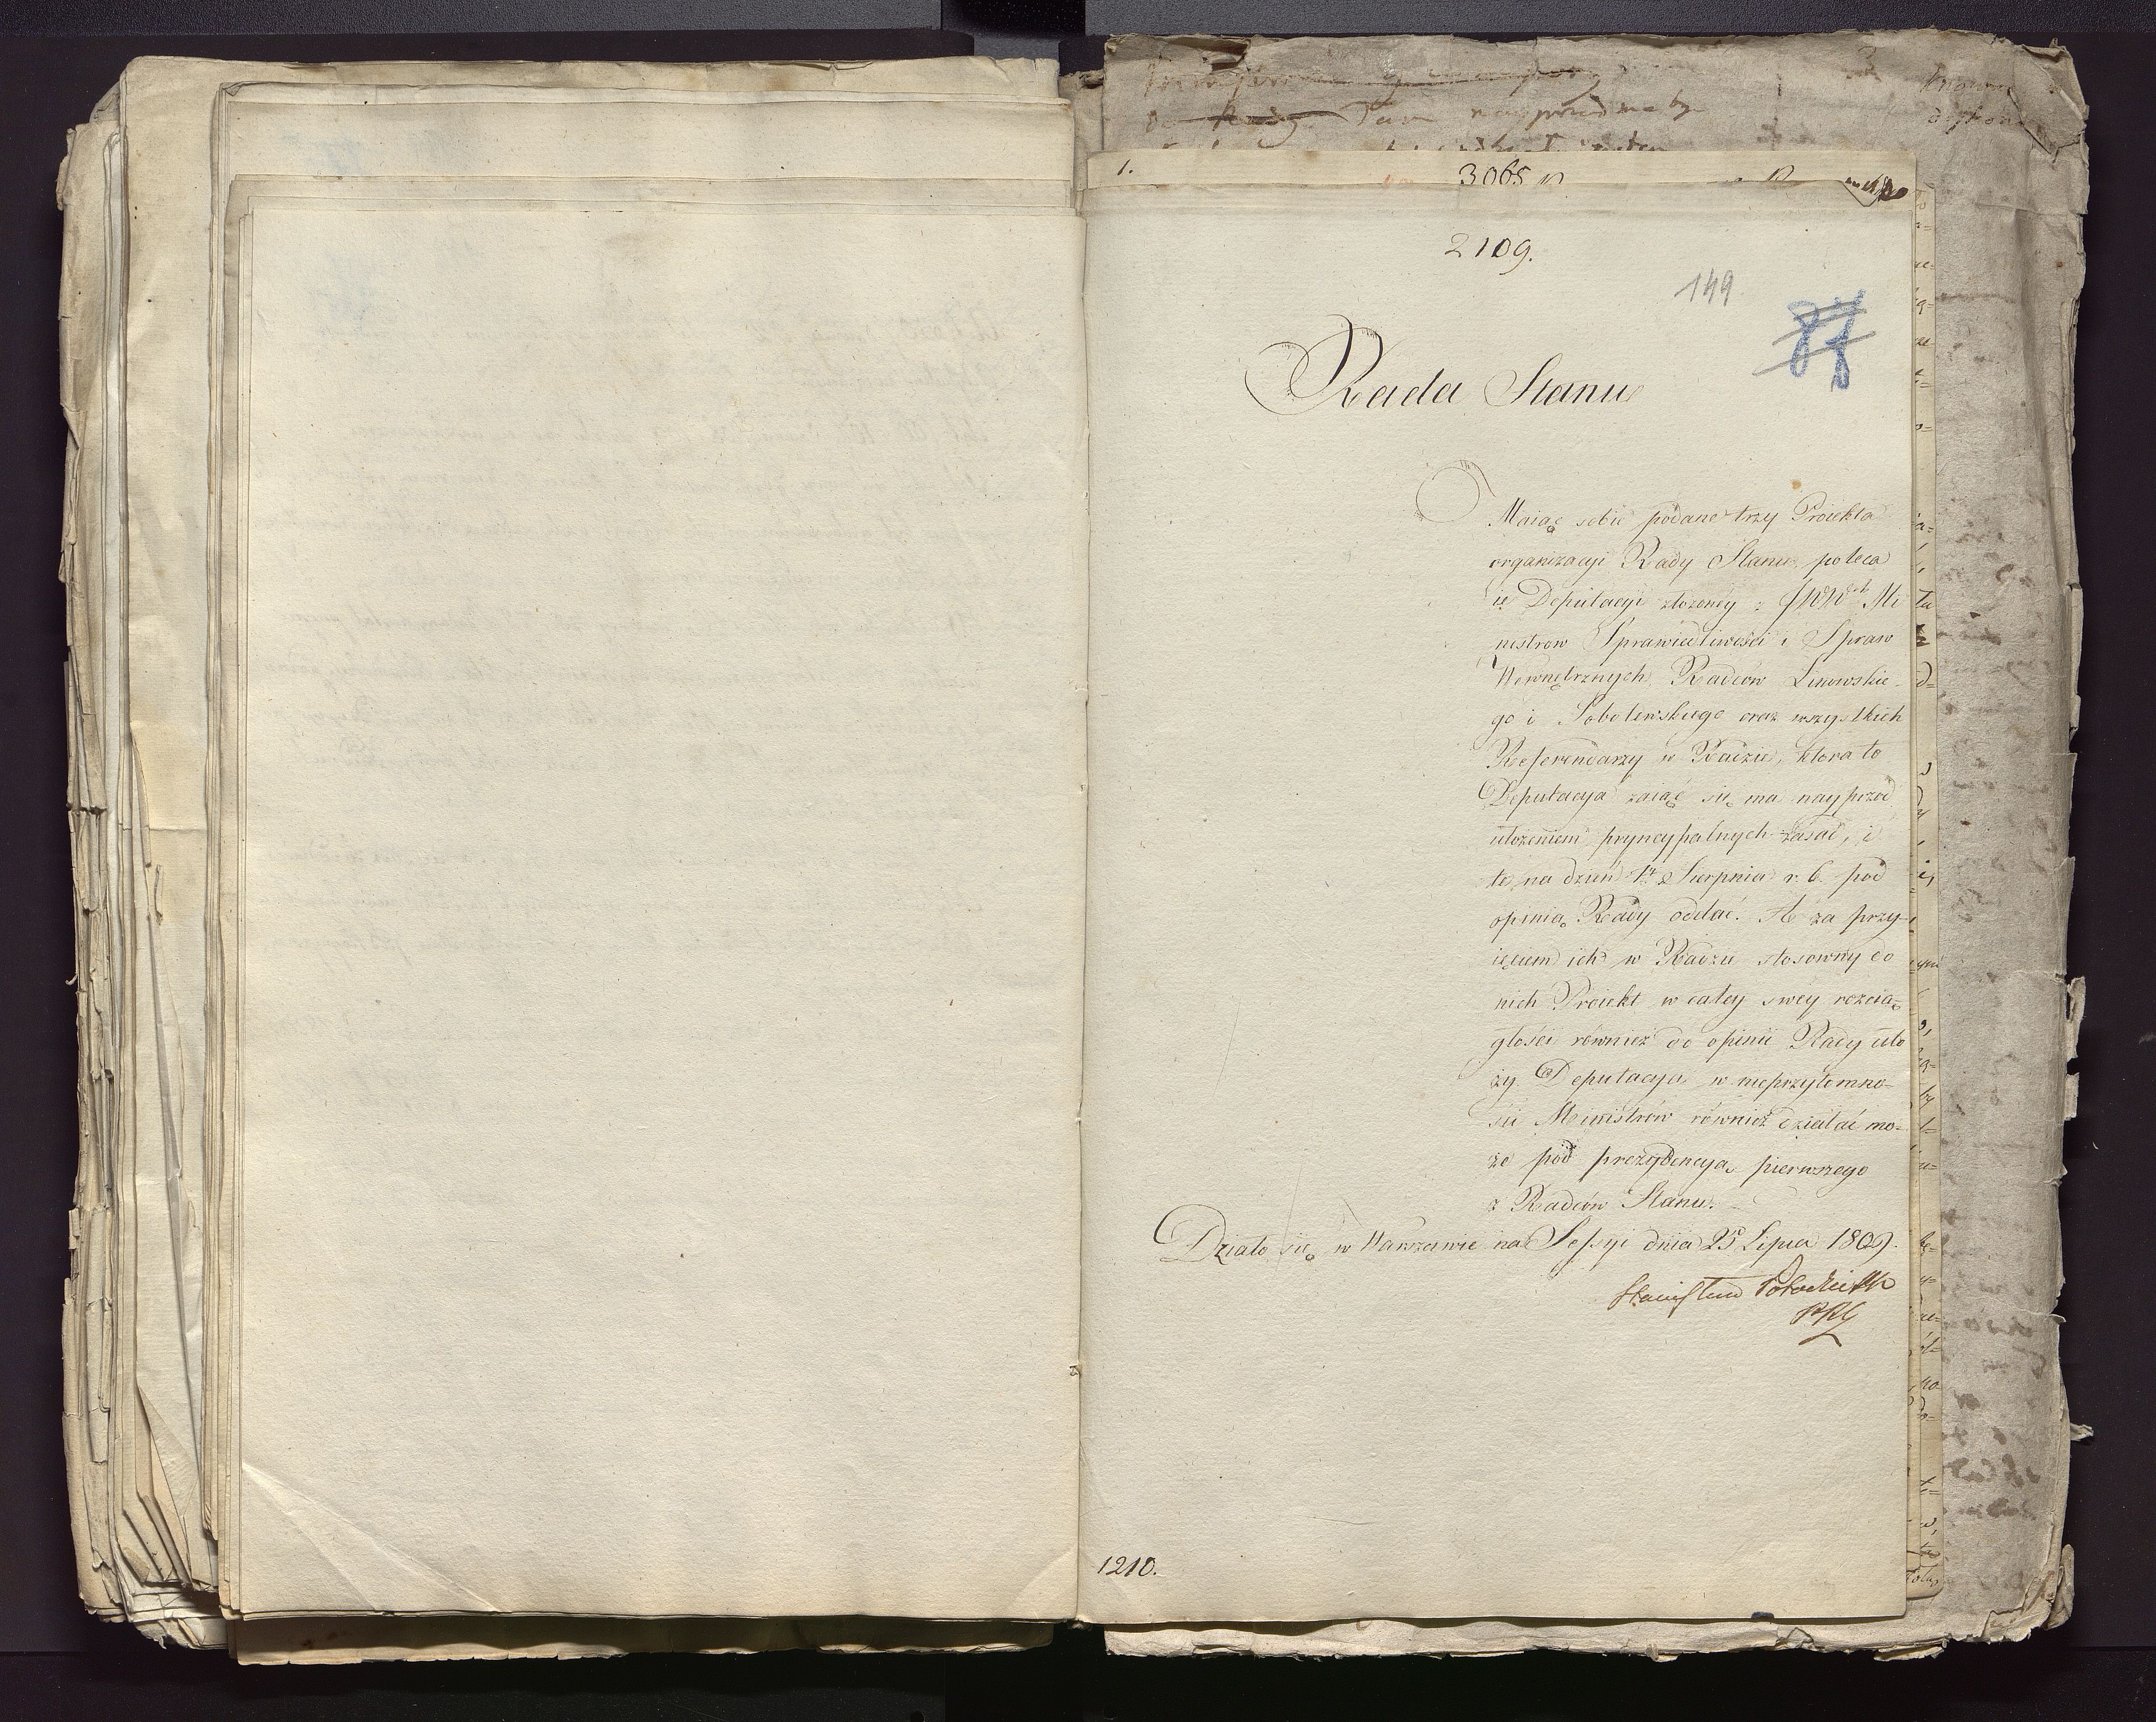 do Rady
1.
3065
2109.
149
77
Rada Stanu
Maiąc sobie podane trzy Proiekta
organizacyi Rady Stanu, poleca
ie Deputacyi złożoney z JWW^ch Mi
nistrow Sprawiedliwości i Spraw
Wewnętrznych Radców Linowskie-
go i Sobolewskiego oraz wszystkich
Referendarzy w Radzie, ktora to
Deputacya zaiąć się ma nayprzod
ułożeniem pryncypalnych zasad, i
te na dzień 1^o Sierpnia r. b. pod
opinią Rady oddać. A za przy-
ięciem ich w Radzie stosowny do
nich Proiekt w całey swey rozcią-
głości również do opinii Rady uło
ży. Deputacya w nieprzytomno-
ści Ministrów również działać mo-
że pod prezydencyą pierwszego
z Radców Stanu.
Działo się w Warszawie na Sessyi dnia 25 Lipca 1809.
Stanisław Potocki
1210.